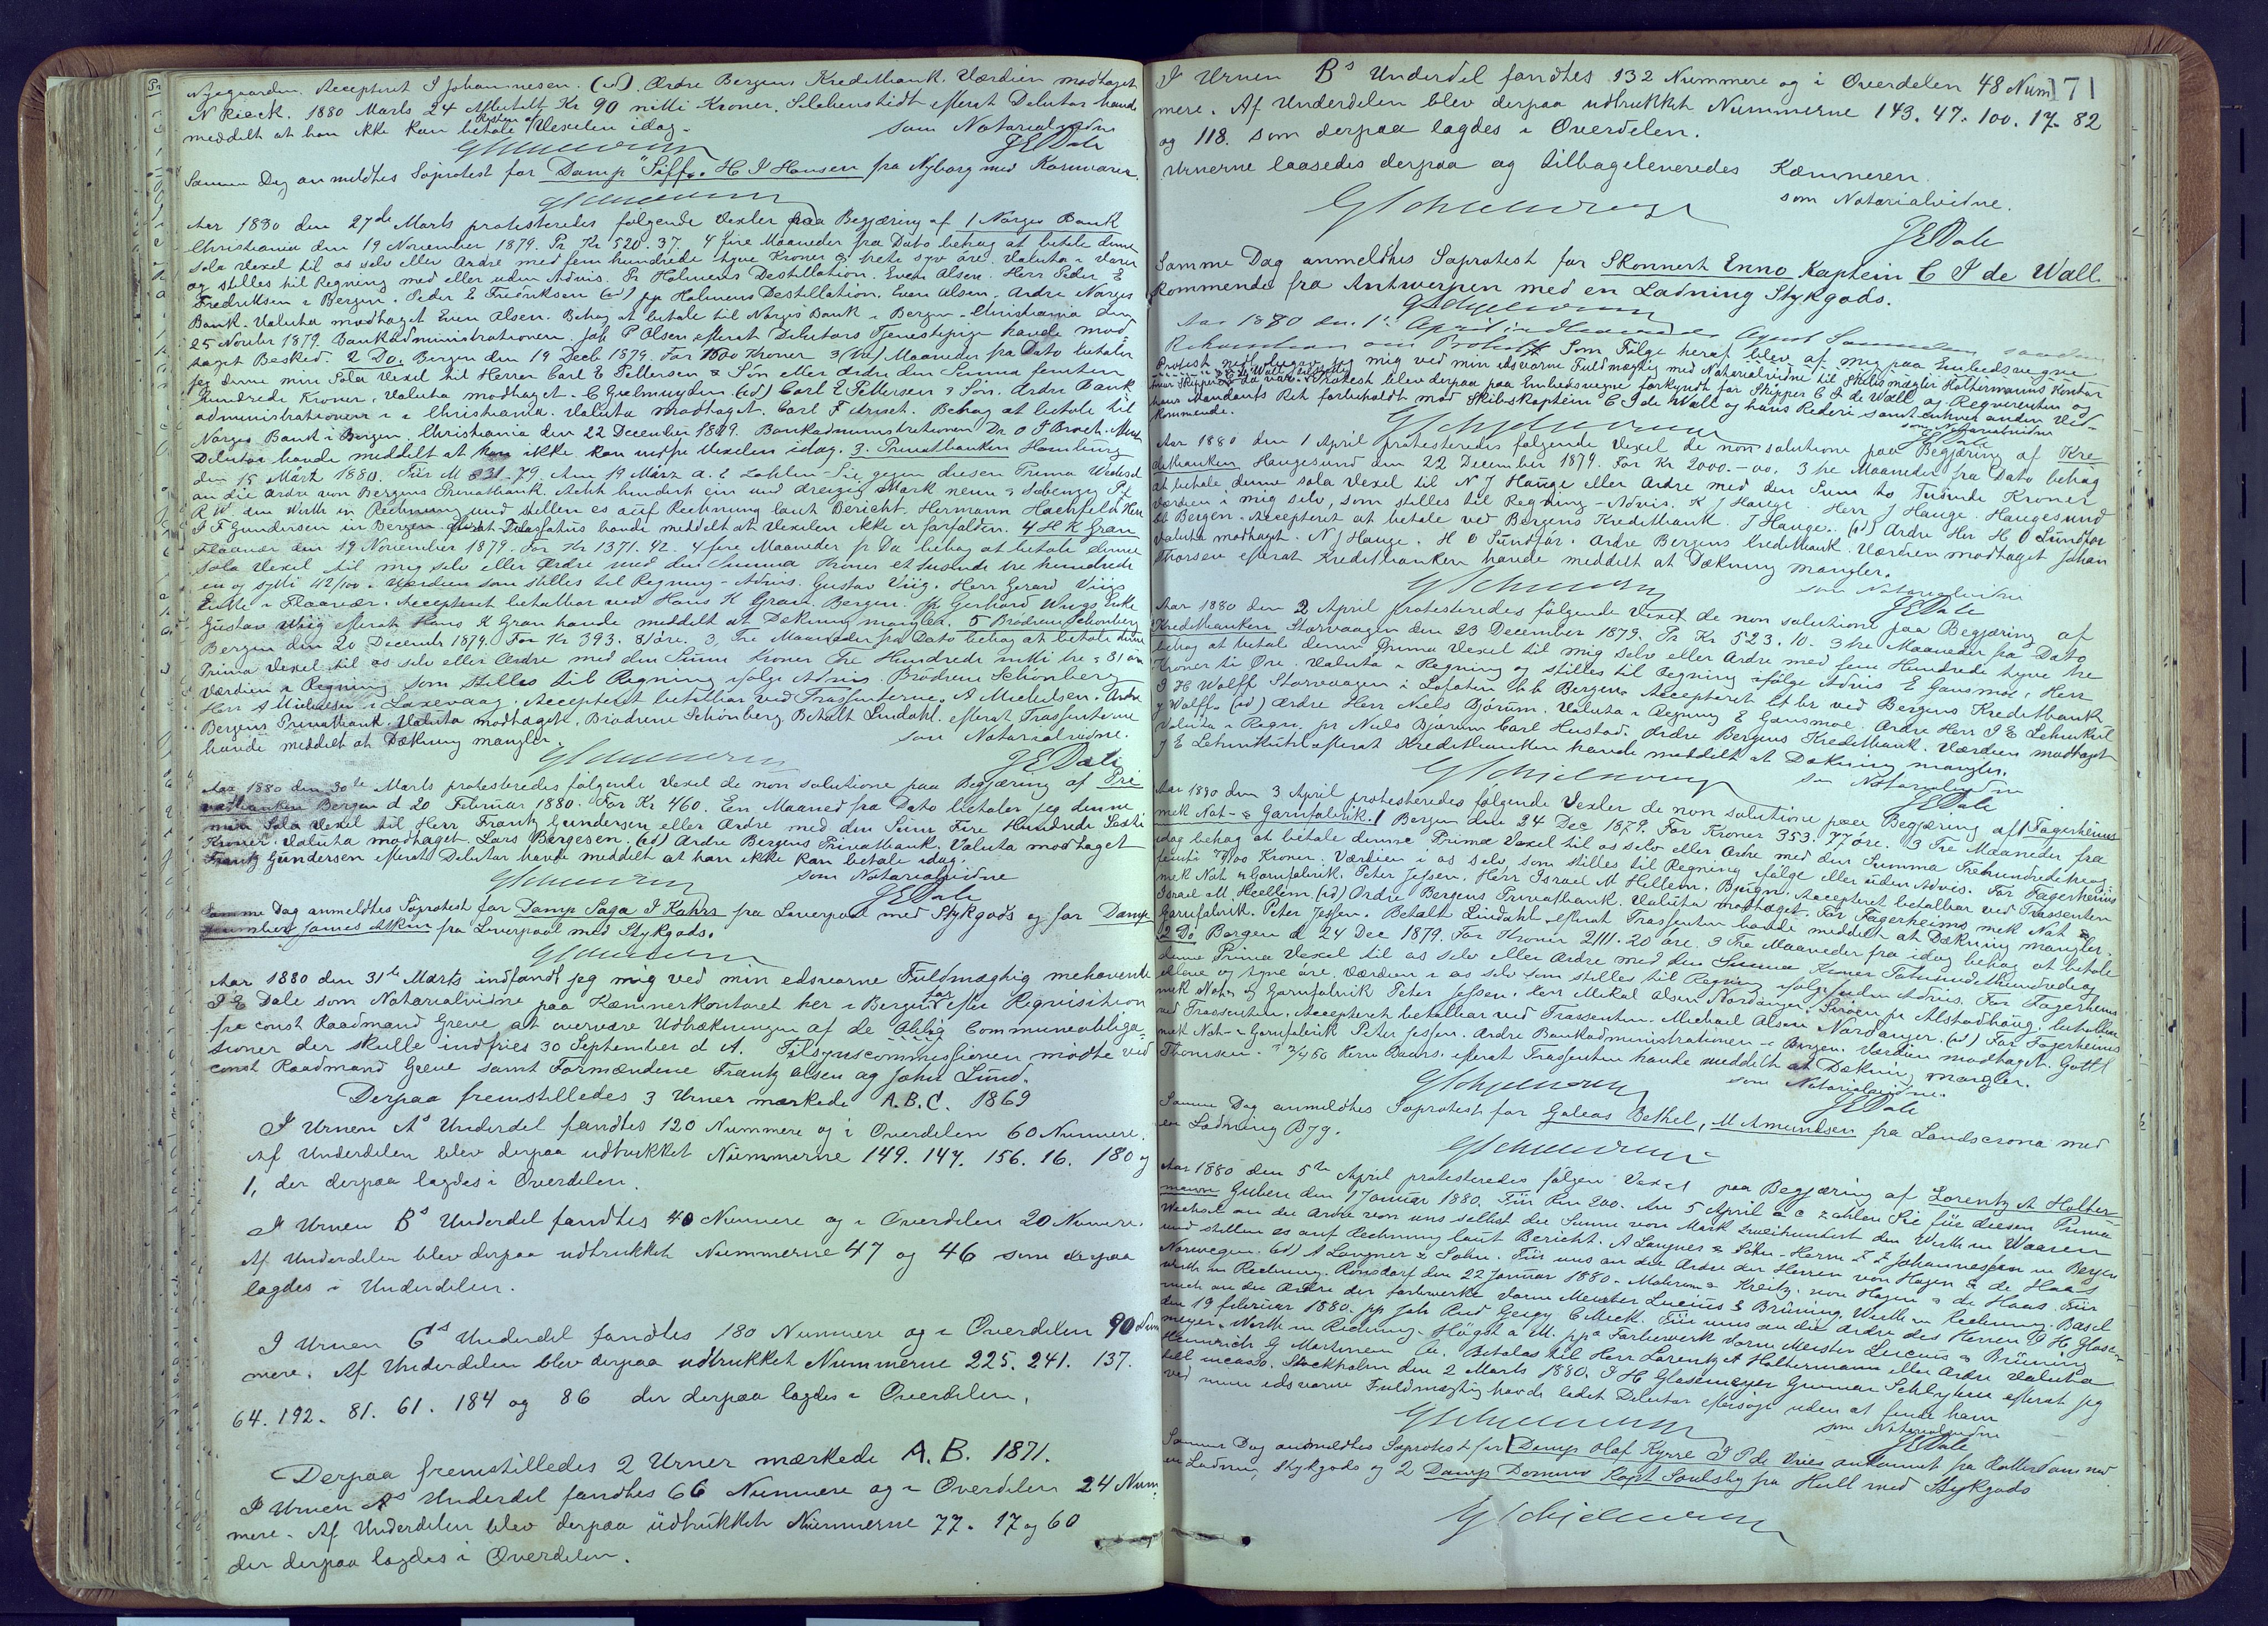 Nygaarden. Accepteret I Johannesen. (id). Ordre Bergens Kreditbank. Værdien modtaget
N Rieck. 1880 Marts 24 Afbetalt Kr 90 nitti Kroner. efterat Debitor havde
meddelt at han ikke kan betale Resten af Vexelen idag.
som Notarialvidne
JEDale
Samme Dag anmeldtes Søprotest for Damp "Siffs" H I Hansen fra Nyborg med Kornvarer.
Aar 1880 den 27de Marts protesteredes følgende Vexler paa Begjæring af 1 Norges Bank
Christiania den 19 November 1879. Pr Kr 520.37. 4 fire Maaneder fra Dato behag at betale denne
Sola Vexel til os selv eller Ordre med fem hundrede tyve Kroner & trete syv øre. Valuta i Varer
og stilles til Regning med eller uden Advis. Pr Holmens Destillation. Even Olsen. Herr Peder E
Fredriksen i Bergen. Peder E Fredriksen (id) pp Holmens Destillation. Even Olsen. Ordre Norges
Bank. Valuta modtaget Even Olsen. Behag at betale til Norges Bank i Bergen. Christiania den
25 Novbr 1879. Bankadministrationen. Joh P Olsen efterat Debitors Tjenestepige havde mod-
taget Besked. 2 Do. Bergen den 19 Decb 1879. For 1500 Kroner 3 (tre) Maaneder fra Dato betaler
jeg denne min Sola Vexel til Herrer Carl E Pettersen & Søn eller Ordre den Summa femten
hundrede Kroner. Valuta modtaget. C Gjelmuyden (id) Carl E Pettersen & Søn. Ordre Bank-
administrationen i Christiania. Valuta modtaget. Carl F Behag at betale til
Norges Bank i Bergen. Christiania den 22 December 1879. Bankadministrationen Dr O J Broch.
Debitor havde meddelt at han ikke kan indfri Vexelen idag. 3. Privatbanken Hamburg
den 15 Märt 1880. Für M 831.79. Am 19 März a. c. zahlen Sie gegen diesen Prima Wechsel
an die Ordre von Bergens Privatbank. Acht hundert ein und dreizig Mark neun & sebenzig Pf
R W den Werth in Rechnung und stellen es auf Rechnung laut Bericht. Hermann Hachfeld Herr
I F Gundersen in Bergen efterat Trassatus havde meddelt at Vexelen ikke er forfalden. 4 H K Gran
Flaavær den 19 November 1879. For Kr 1371.42. 4 fire Maaneder fr Da behag at betale denne
Sola Vexel til mig selv eller Ordre med den Summa Kroner et tusende tre hundrede
en og sytti 42/100. Værdien som stilles til Regning. Advis. Gustav Wiig. Herr Gerard Wiigs
Enke i Flaavær. Accepteret betalbar ved Hans K Gran. Bergen. pp Gerhard Wiigs Enke
Gustav Wiig efterat Hans K Gran havde meddelt at Dækning mangler. 5 Brødrene Schönberg
Bergen den 20 Decemb 1879. For Kr 393. 81 øre. 3, Tre Maaneder fra Dato behag at betale denne
Prima Vexel til os selv eller Ordre med den Sum Kroner Tre Hundrede nitti tre & 81 øre
Værdien i Regning som stilles til Regning ifølge Advis. Brødrene Schönberg
Herr A Michelsen i Laxevaag. Accepteret betalbar ved Trassenterne. A Michelsen. Ordre
Bergens Privatbank. Valuta modtaget. Brødrene Schönberg Betalt Lindahl. efterat Trassenterne
havde meddelt at Dækning mangler.
som Notarialvidne.
JEDale
Aar 1880 den 30te Marts protesteredes følgende Vexel de non solutione paa Begjæring af Pri
vatbanken Bergen d 20 Februar 1880. For Kr 460. En Maaned fra Dato betaler jeg denne
min Sola Vexel til Herr Frantz Gundersen eller Ordre med den Sum Fire Hundrede Sexti
Kroner. Valuta modtaget. Lars Børgesen. (id) Ordre Bergens Privatbank. Valuta modtaget
Frantz Gundersen efterat Debitor havde meddelt at han ikke kan betale idag.
som Notarialvidne
JEDale
Samme Dag anmeldtes Søprotest for Damp Saga I Kahrs fra Liverpool med Stykgods og for Damp
Humber James Atkin fra Liverpool med Stykgods.
Aar 1880 den 31te Marts indfandt jeg mig ved min edsvorne Fuldmægtig mehavende
I E Dale som Notarialvidne paa Kæmnerkontoret her i Bergens efter Requisition
fra const Raadmand Greve at overvære Udtrækningen af de Oblig Communeobliga-
tioner der skulle indfries 30 September d A. Tilsynscommissionen mødte ved
const Raadmand Greve samt Formændene Frantz Olsen og John Lund.
Derpaa fremstilledes 3 Urner mærkede A.B.C. 1869
I Urnen As Underdel fandtes 120 Nummere og i Overdelen 60 Numere.
Af Underdelen blev derpaa udtrukket Nummerne 149. 147. 156. 16. 180 og
1, der derpaa lagdes i Overdelen.
I Urnen Bs Underdel fandtes 40 Numere og i Overdelen 20 Numere.
Af Underdelen blev derpaa udtrukket Nummerne 47 og 46 som derpaa
lagdes i Underdelen.
I Urnen Cs Underdel fandtes 180 Numere og i Overdelen 90 Num
mere. Af Underdelen blev derpaa udtrukket Nummerne 225. 241. 137.
64. 192. 81. 61. 184 og 86 der derpaa lagdes i Overdelen.
Derpaa fremstilledes 2 Urner mærkede A.B. 1871.
I Urnen As Underdel fandtes 66 Numere og i Overdelen 24 Num-
mere. Af Underdelen blev derpaa udtrukket Nummerne 77. 17 og 60
der derpaa lagdes i Overdelen.
171
I Urnen Bs Underdel fandtes 132 Nummere og i Overdelen 48 Num
mere. Af Underdelen blev derpaa udtrukket Nummerne 143. 47. 100. 17. 82
og 118. som derpaa lagdes i Overdelen.
Urnerne laasedes derpaa og tilbageleveredes Kæmneren.
som Notarialvidne.
JEDale
Samme Dag anmeldtes Søprotest for Skonnert Enno Kaptein C I de Wall
kommende fra Antwerpen med en Ladning Stykgods.
Aar 1880 den 1ste April
Rekvisition om Protest. Som Følge heraf blev af mig paa Embedsvegne
Protest nedl. begav jeg mig ved min edsvorne Fuldmægtig med Notarialvidne til Skibsmægler Holtermanns Kontor
hvor Skipper da var. Protest blev derpaa paa Embedsvegne forkyndt for Skipper C I de Wall og Reqvirenten og
hans Mandants Ret forbeholdt mod Skibskaptein C I de Wall og hans Rederi samt enhver anden Ved-
kommende.
som Notarialvidne
JEDale
Aar 1880 den 1 April protesteredes følgende Vexel de non solutione paa Begjæring af Kre
ditbanken Haugesund den 22 December 1879. For Kr 2000.-00. 3 tre Maaneder fra Dato behag
at betale denne sola Vexel til N J Hauge eller Ordre med den Sum to Tusende Kroner
Værdien i mig selv, som stilles til Regning - Advis. N J Hauge. Herr J Hauge. Haugesund
bt Bergen. Accepteret at betale ved Bergens Kreditbank. J Hauge. (id) Ordre Her H O Sundfor
Valuta modtaget. N J Hauge. H O Sundfør. Ordre Bergens Kreditbank. Værdien modtaget Johan
Thorsen efterat Kreditbanken havde meddelt at Dækning mangler.
som Notarialvidne
JEDale
Aar 1880 den 2 April protesteredes følgende Vexel de non solutione paa Begjæring af
Kreditbanken Storvaagen den 23 December 1879. Pr Kr 523.10. 3 tre Maaneder fra Dato
behag at betale denne Prima Vexel til mig selv eller Ordre med fem Hundrede tyve tre
Kroner ti Øre. Valuta i Regning og stilles til Regning ifølge Advis E Gausmoe. Herr
I H Wolff Storvaagen i Lofoten bt Bergen. Accepteret bt br ved Bergens Kreditbank
J Wolff. (id) Ordre Herr Niels Bjørum. Valuta i Regning E Gausmoe. Ordre Herr I E Lehmkuhl
Valuta i Regn. pr Niels Bjørum Carl Hustad. Ordre Bergens Kreditbank. Værdien modtaget
J E Lehmkuhl efterat Kreditbanken havde meddelt at Dækning mangler.
som Notarialvidne
JEDale
Aar 1880 den 3 April protesteredes følgende Vexler de non solutione paa Begjæring af 1 Fagerheims
mek Not- & Garnfabrik. 1 Bergen den 24 Dec 1879. For Kroner 353. 77 øre. 3 Tre Maaneder fra
idag behag at betale denne Prima Vexel til os selv eller Ordre med den Summa Trehundrede treog
femti 77/100 Kroner. Værdien i os selv, som stilles til Regning ifølge eller uden Advis. For Fagerheims
mek Not & Garnfabrik. Peter Jessen. Herr Israel M Hellem. Bjugn. Accepteret betalbar ved Trassenten
Israel M Hellem. (id) Ordre Bergens Privatbank. Valuta modtaget. For Fagerheims mek Not &
Garnfabrik. Peter Jessen. Betalt Lindahl efterat Trassenten havde meddelt at Dækning mangler.
2 Do Bergen d 24 Dec 1879. For Kroner 2111.20 øre. 3 Tre Maaneder fra idag behag at betale
denne Prima Vexel til os selv eller Ordre med den Summa Kroner Totusindethundredeog
elleve og tyve øre. Værdien i os selv som stilles til Regning ifølge uden Advis. For Fagerheims
mek Not- og Garnfabrik Peter Jessen. Herr Mikal Olsen Nordanger. pr Alstadhaug. betalbar
ved Trassenten. Accepteret betalbar ved Trassenten. Michael Olsen Nordanger. (id) For Fagerheims
mek Not- & Garnfabrik Peter Jessen. Ordre Bankadministrationen i Bergen. Værdien modtaget. Gottl
Thomsen. Herm Baars. efterat Trassenten havde meddelt at Dækning mangler.
som Notarialvidne.
JEDale
Samme Dag anmeldtes Søprotest for Galeas Bethel, M Amundsen fra Landscrona med
en Ladning Byg.
Aar 1880 den 5te April protesteredes følgen Vexel paa Begjæring af Lorentz A Holter-
mann Guben den 1 Januar 1880. Für Rm 200. Am 5 April a c zahlen Sie für diesen Prima
Wechsel an die Ordre von uns selbst die Summe von Mark zweihundert den Werth in Waaren
und stellen es auf Rechnung laut Bericht. A Langner & Sohn. Herrn Z Z Johannessen in Bergen
Norwegen. (id) A Langner & Sohn. Für uns an die Ordre der Herren von Hagen & de Haas
Werth in Rechnung. Ronsdorf den 22 Januar 1880. Kreitz. von Hagen & de Haas. Für
mich an die Ordre der farbwerke vorm Meister Lucius & Brüning. Werth in Rechnung. Basel
den 19 februar 1880. pp Joh Rud Geigy C Meck. Für uns an die Ordre des Herren I H Glase-
meyer. Werth in Rechnung. Högst a M. ppa Farbwerk vorm Meister Lucius & Brüning
Heinrich G Martinen Betalas til Herr Lorentz A Holtermann eller Ordre Valuta
till incasso. Stockholm den 2 Marts 1880. I H Glasemeyer Gunnar Schlyhm efterat jeg
ved min edsvorne Fuldmægtig havde ladet Debitor eftersøge uden at finde ham
som Notarialvidne
JEDale
Samme Dag anmeldtes Søprotest for 1 Damp Olaf Kyrre I P de Vries ankommet fra Rotterdam med
en Ladning Stykgods og 2 Damp Domino Kapt Soulsby fra Hull med Stykgods